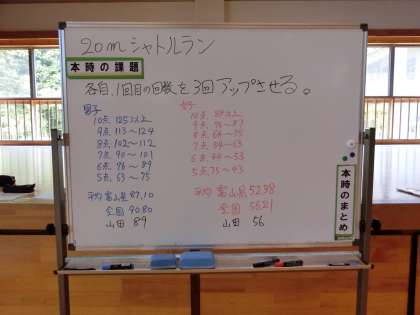 20mシャトルラン
本時の課題
各自、1回目の回数を3回アップさせる。
男子
10点 125以上
9点 113~124
8点 102~112
7点 90~101
6点 76~89
5点 63~75
平均 富山県 87.10
全国 90.80
山田 89
女子
10点 88以上
9点 76~87
8点 64~75
7点 54~63
6点 44~53
5点 35~43
平均 富山県 52.98
全国 56.21
山田 56
本時のまとめ